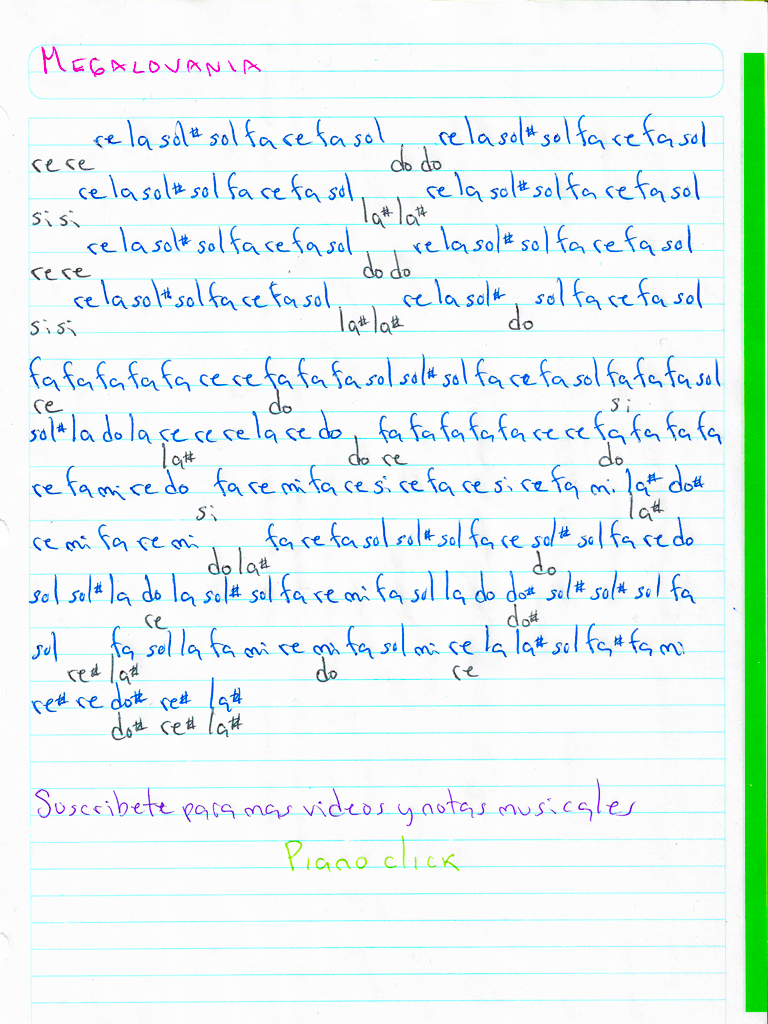 MEGALOVANIA
re la sol# sol fa re fa sol re la sol# sol fa re fa sol
re re do do
re la sol# sol fa re fa sol re la sol# sol fa re fa sol
si si la# la#
re la sol# sol fa re fa sol re la sol# sol fa re fa sol
re re do do
re la sol# sol fa re fa sol re la sol# sol fa re fa sol
si si la# la# do
fa fa fa fa fa re re fa fa fa sol sol# sol fa re fa sol fa fa fa sol
re do si
sol# la do la re re re la re do fa fa fa fa fa re re fa fa fa fa
la# do re do
re fa mi re do fa re mi fa re si re fa re si re fa mi la# do#
si la#
re mi fa re mi fa re fa sol sol# sol fa re sol# sol fa re do
do la# do
sol sol# la do la sol# sol fa re mi fa sol la do do# sol# sol# sol fa
re do#
sol fa sol la fa mi re mi fa sol mi re la la# sol fa# fa mi
re# la# do re
re# re do# re# la#
do# re# la#
Suscribete para mas videos y notas musicales
Piano click